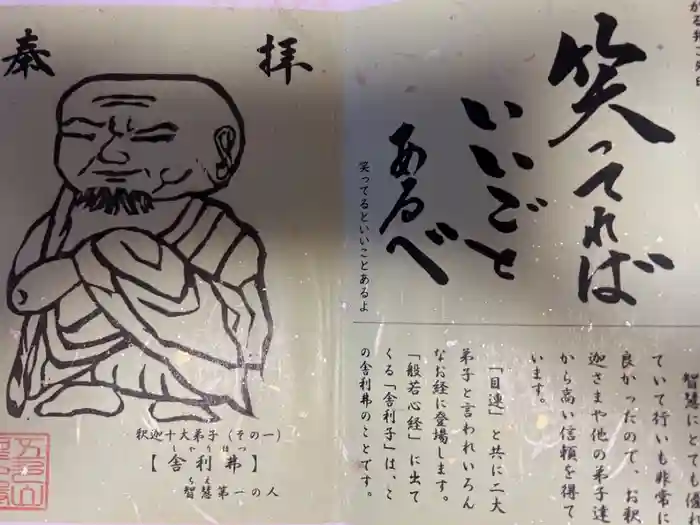 がる
笑ってれば
いいごと
あるべ
笑ってるといいことあるよ
智慧にとても優れ
ていて行いも非常に
良かったので、お釈
迦さまや他の弟子達
から高い信頼を得て
います。
「目連」と共に二大
弟子と言われいろん
なお経に登場します。
「般若心経」に出て
くる「舎利子」は、こ
の舎利弗のことです。
奉拝
釈迦十大弟子（その一）
しゃりほつ
【舎利弗】
ちえ
智慧第一の人